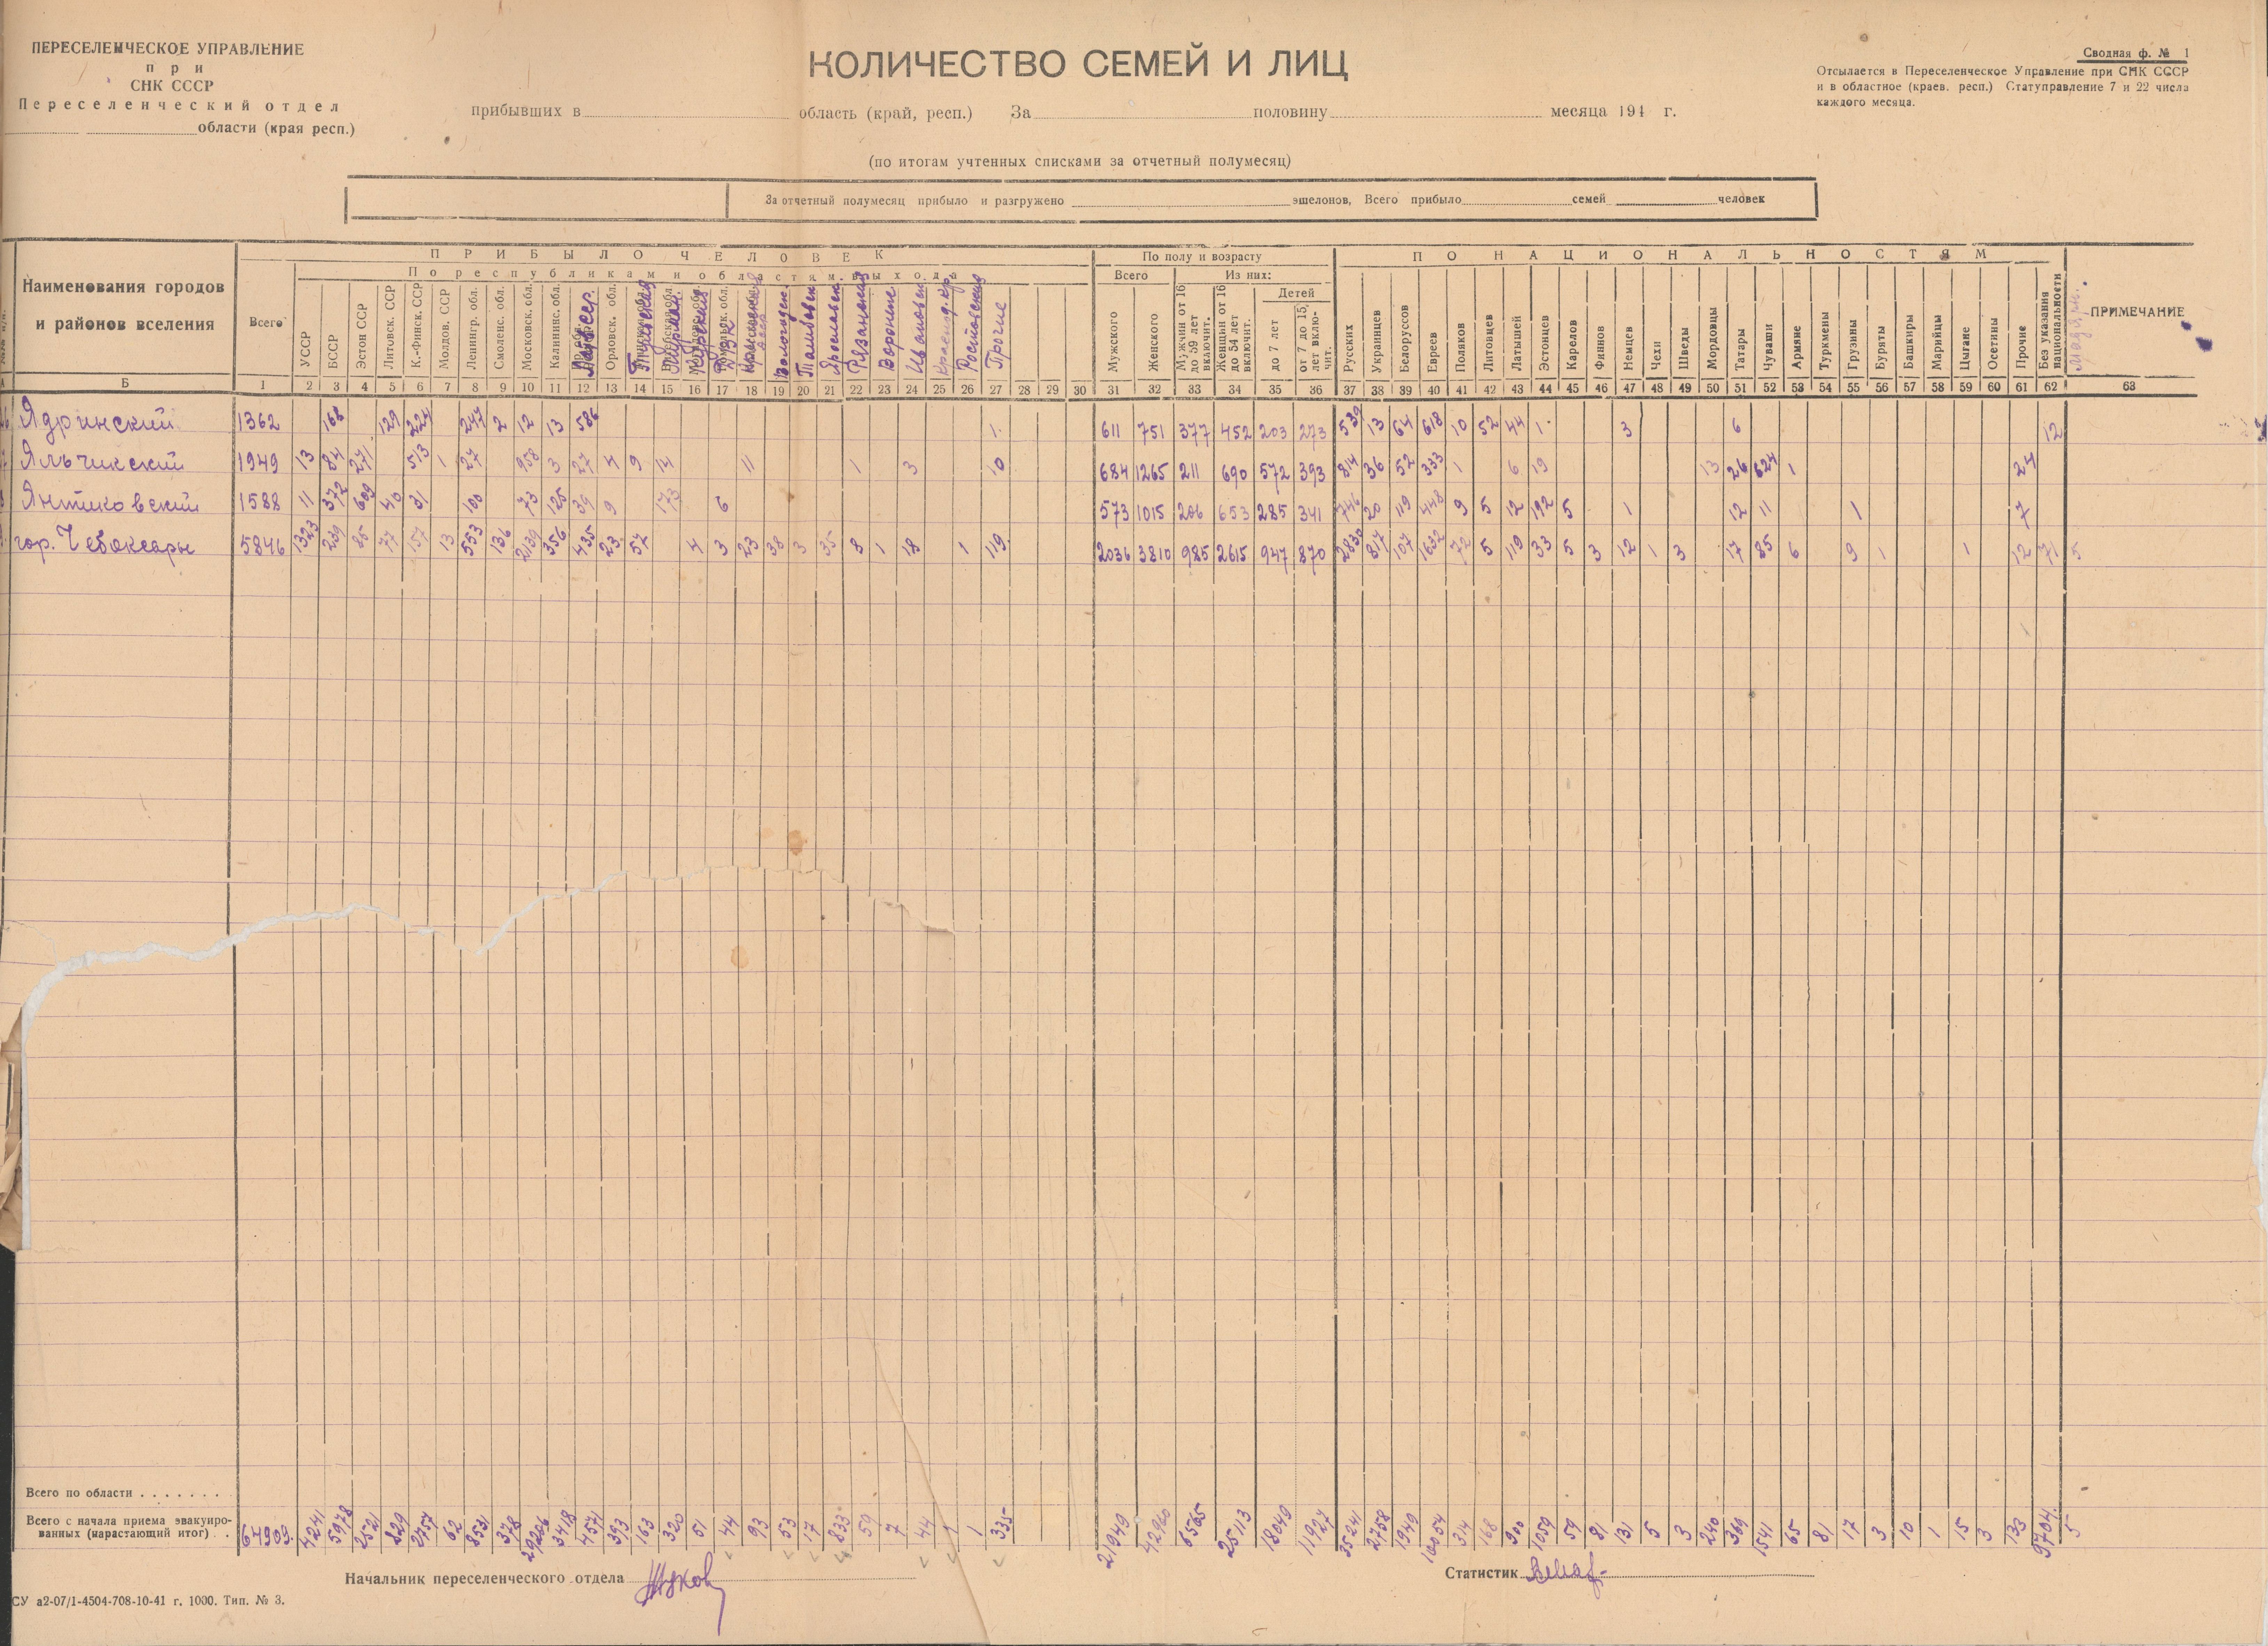 ПЕРЕСЕЛЕНЧЕСКОЕ УПРАВЛЕНИЕ
при
СНК СССР
Переселенческий отдел
области (края респ.)
КОЛИЧЕСТВО СЕМЕЙ И ЛИЦ
прибывших в область (край, респ.) За половину месяца 194 г.
(по итогам учтенных списками за отчетный полумесяц)
Сводная ф. № 1
Отсылается в Переселенческое Управление при СНК СССР
и в областное (краев. респ.) Статуправление 7 и 22 числа
каждого месяца.
За отчетный полумесяц прибыло и разгружено эшелонов, Всего прибыло семей человек
Наименования городов
и районов вселения
ПРИБЫЛО ЧЕЛОВЕК
По республикам и областям выхода
По полу и возрасту
ПО НАЦИОНАЛЬНОСТЯМ
ПРИМЕЧАНИЕ
Всего
УССР
БССР
Эстон ССР
Литовск. ССР
К.-Финск. ССР
Молдов. ССР
Ленингр. обл.
Смоленс. обл.
Московск. обл.
Калининс. обл.
Латв ССР
Орловск. обл.
Тульская
Мурман.
Курская
Вологодск
Тамбовск
Ярославск
Рязанская
Воронеж
Ивановск
Краснод. кр.
Ростовская
Прочие
Всего
Из них:
Детей
Мужского
Женского
Мужчин от 16 до 59 лет включит.
Женщин от 16 до 54 лет включит.
до 7 лет
от 7 до 15 лет включит.
Русских
Украинцев
Белоруссов
Евреев
Поляков
Литовцев
Латышей
Эстонцев
Карелов
Финнов
Немцев
Чехи
Шведы
Мордовцы
Татары
Чуваши
Армяне
Туркмены
Грузины
Буряты
Башкиры
Марийцы
Цыгане
Осетины
Прочие
Без указания национальности
Б 1 2 3 4 5 6 7 8 9 10 11 12 13 14 15 16 17 18 19 20 21 22 23 24 25 26 27 28 29 30 31 32 33 34 35 36 37 38 39 40 41 42 43 44 45 46 47 48 49 50 51 52 53 54 55 56 57 58 59 60 61 62 63
Ядринский 1362 168 129 224 247 2 12 13 586 1 611 751 377 452 203 273 539 13 64 618 10 52 44 1 3 6 12
Яльчикский 1949 13 84 271 513 1 27 958 3 27 4 9 14 11 1 3 10 684 1265 211 690 572 393 814 36 52 333 1 6 19 13 26 624 1 24
Янтиковский 1588 11 372 609 40 31 100 73 125 39 9 173 6 573 1015 206 653 285 341 746 20 119 448 9 5 12 192 5 1 12 11 1 7
гор. Чебоксары 5846 1323 239 85 77 157 13 553 136 2139 356 435 23 54 4 3 23 38 3 35 8 1 18 1 119 2036 3810 985 2615 947 870 2830 817 107 1632 72 5 119 33 5 3 12 1 3 17 85 6 9 1 1 12 71 5
Всего по области
Всего с начала приема эвакуиро-
ванных (нарастающий итог) 64909 4241 5978 2521 829 2757 62 8531 378 29206 3418 4571 393 163 320 51 44 93 53 17 833 59 7 44 1 1 335 21949 42960 6565 25113 18049 11927 35241 2758 1949 10054 314 168 900 1059 59 81 131 5 3 240 369 1541 65 81 17 3 10 1 15 3 133 9704 5
Начальник переселенческого отдела
Статистик
СУ а2-07/1-4504-708-10-41 г. 1000. Тип. № 3.